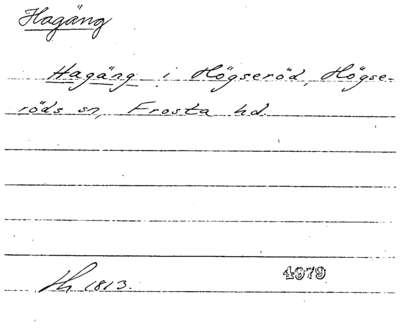 Hagäng
Hagäng i Högseröd, Högse-
röds sn, Frosta hd.
1813.
4979